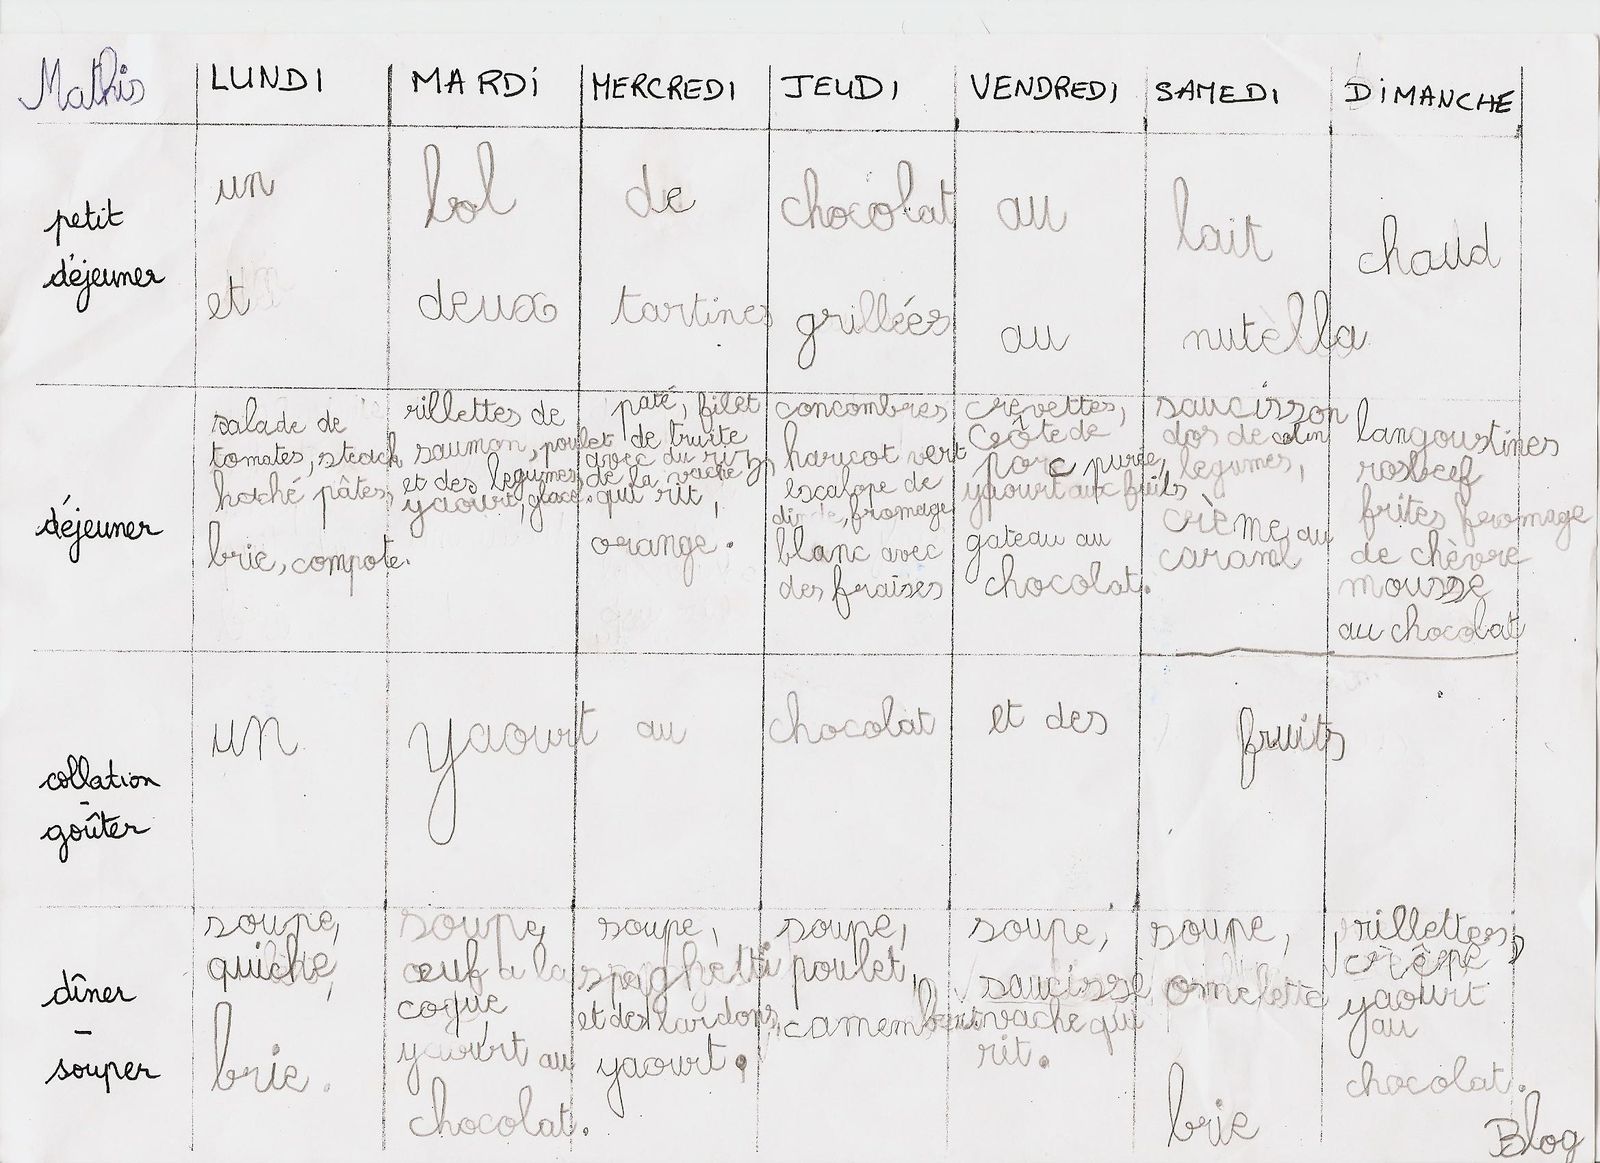 Mathis LUNDI MARDI MERCREDI JEUDI VENDREDI SAMEDI DIMANCHE
petit
déjeuner
un bol de chocolat au lait chaud
et deux tartines grillées au nutella
déjeuner
salade de
tomates, steack
haché pâtes,
brie, compote.
rillettes de
saumon, poulet
et des legumes,
yaourt, glace.
paté, filet
de truite
avec du riz,
de la vache
qui rit,
orange.
concombres
haricot vert
escalope de
dinde, fromage
blanc avec
des fraises
crevettes,
côte de
porc purée,
yaourt aux fruits
gateau au
chocolat.
saucisson
dos de colin
legumes,
crème au
caramel
langoustines
rosbeef
frites fromage
de chèvre
mousse
au chocolat
collation
-
goûter
un yaourt au chocolat et des fruits
dîner
-
souper
soupe,
quiche,
brie.
soupe,
œuf a la
coque,
yaourt au
chocolat.
soupe,
spaghetti
et des lardons,
yaourt.
soupe,
poulet,
camembert
soupe,
saucisse,
vache qui
rit.
soupe,
omelette
brie
rillettes,
crêpe
yaourt
au
chocolat.
Blog